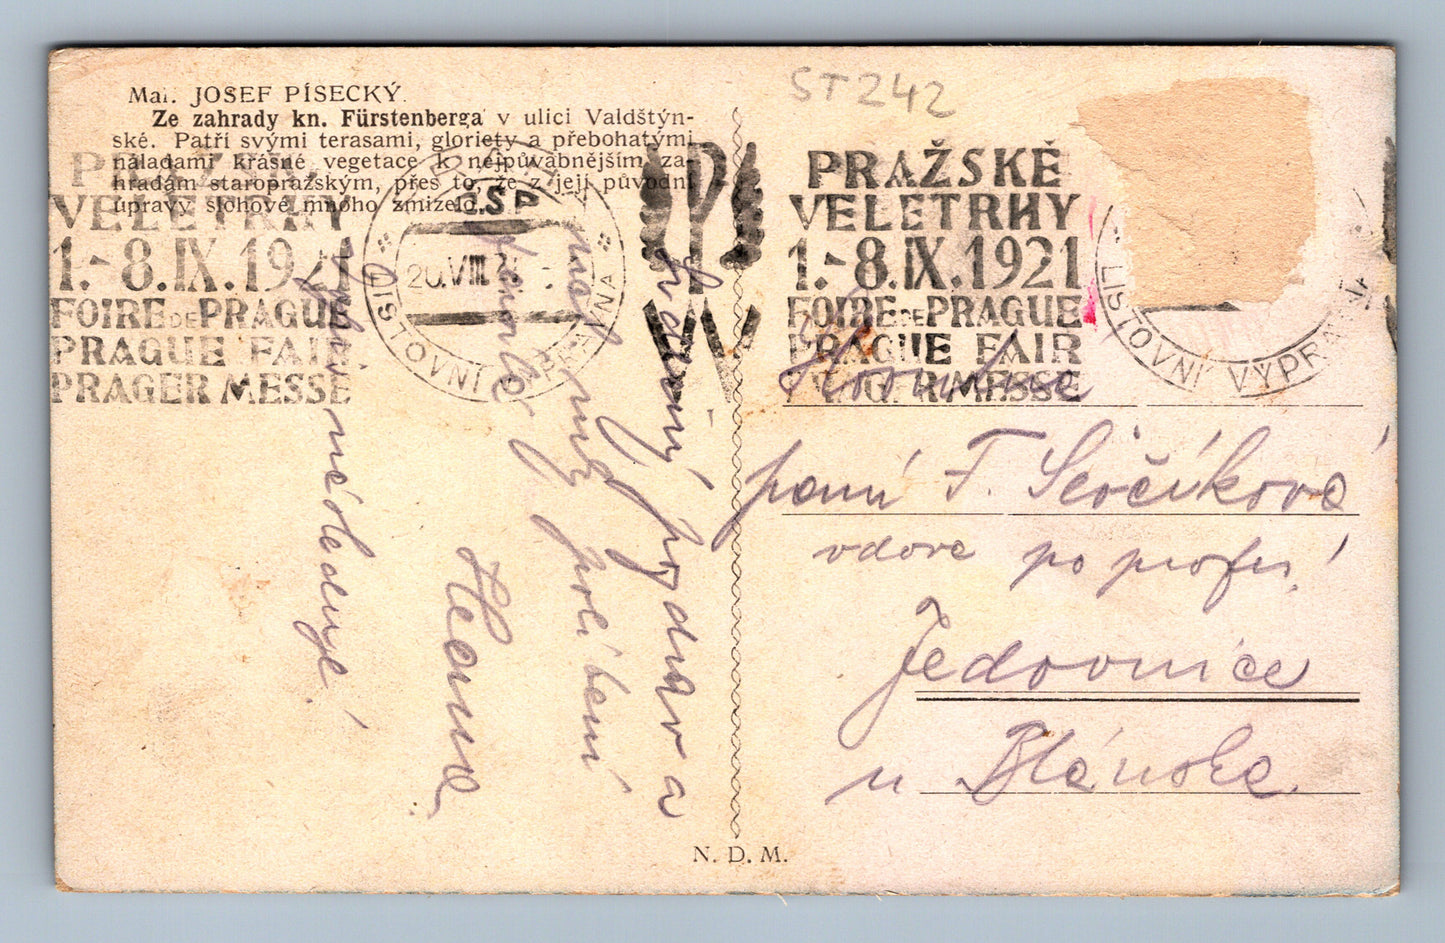 Mal. JOSEF PÍSECKÝ.
Ze zahrady kn. Fürstenberga v ulici Valdštýn-
ské. Patří svými terasami, gloriety a přebohatými
náladami krásné vegetace k nejpůvabnějším za-
hradám staropražským, přes to, že z její původní
úpravy slohové mnoho zmizelo.
ST242
PRAŽSKÉ
VELETRHY
1.-8.IX.1921
FOIRE DE PRAGUE
PRAGUE FAIR
PRAGER MESSE
ČSP
20.VIII.
LISTOVNÍ VÝPRAVNA
PRAŽSKÉ
VELETRHY
1.-8.IX.1921
FOIRE DE PRAGUE
PRAGUE FAIR
PRAGER MESSE
LISTOVNÍ VÝPRAVNA
Srdečný pozdrav a
políbení
Heavá
paní F. Ševčíková
vdova po profes.
Jedovnice
u Blanska.
N. D. M.